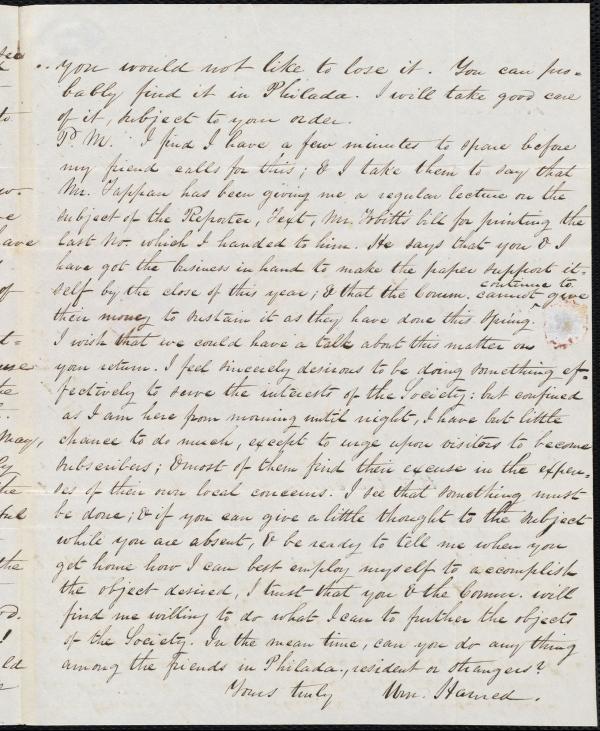 you would not like to lose it. You can pro-
bably find it in Philada. I will take good care
of it, subject to your order.
P.M. I find I have a few minutes to spare before
my friend calls for this; & I take them to say that
Mr. Tappan has been giving me a regular lecture on the
subject of the Reporter, Text, Mr. bill for printing the
last No. which I handed to him. He says that you & I
have got the business in hand to make the paper support it-
self by the close of this year; & that the Comm. cannot continue to give
their money to sustain it as they have done this Spring.
I wish that we could have a talk about this matter on
your return. I feel sincerely desirous to be doing something ef-
fectively to serve the interests of the Society: but confined
as I am here from morning until night, I have but little
chance to do much, except to urge upon visitors to become
subscribers; & most of them find their excuse in the expen-
ses of their own local concerns. I see that something must
be done; & if you can give a little thought to the subject
while you are absent, & be ready to tell me when you
get home how I can best employ myself to accomplish
the object desired, I trust that you & the Comm. will
find me willing to do what I can to further the objects
of the Society. In the mean time, can you do any thing
among the friends in Philada., resident or strangers?
Yours truly Wm. Harned.